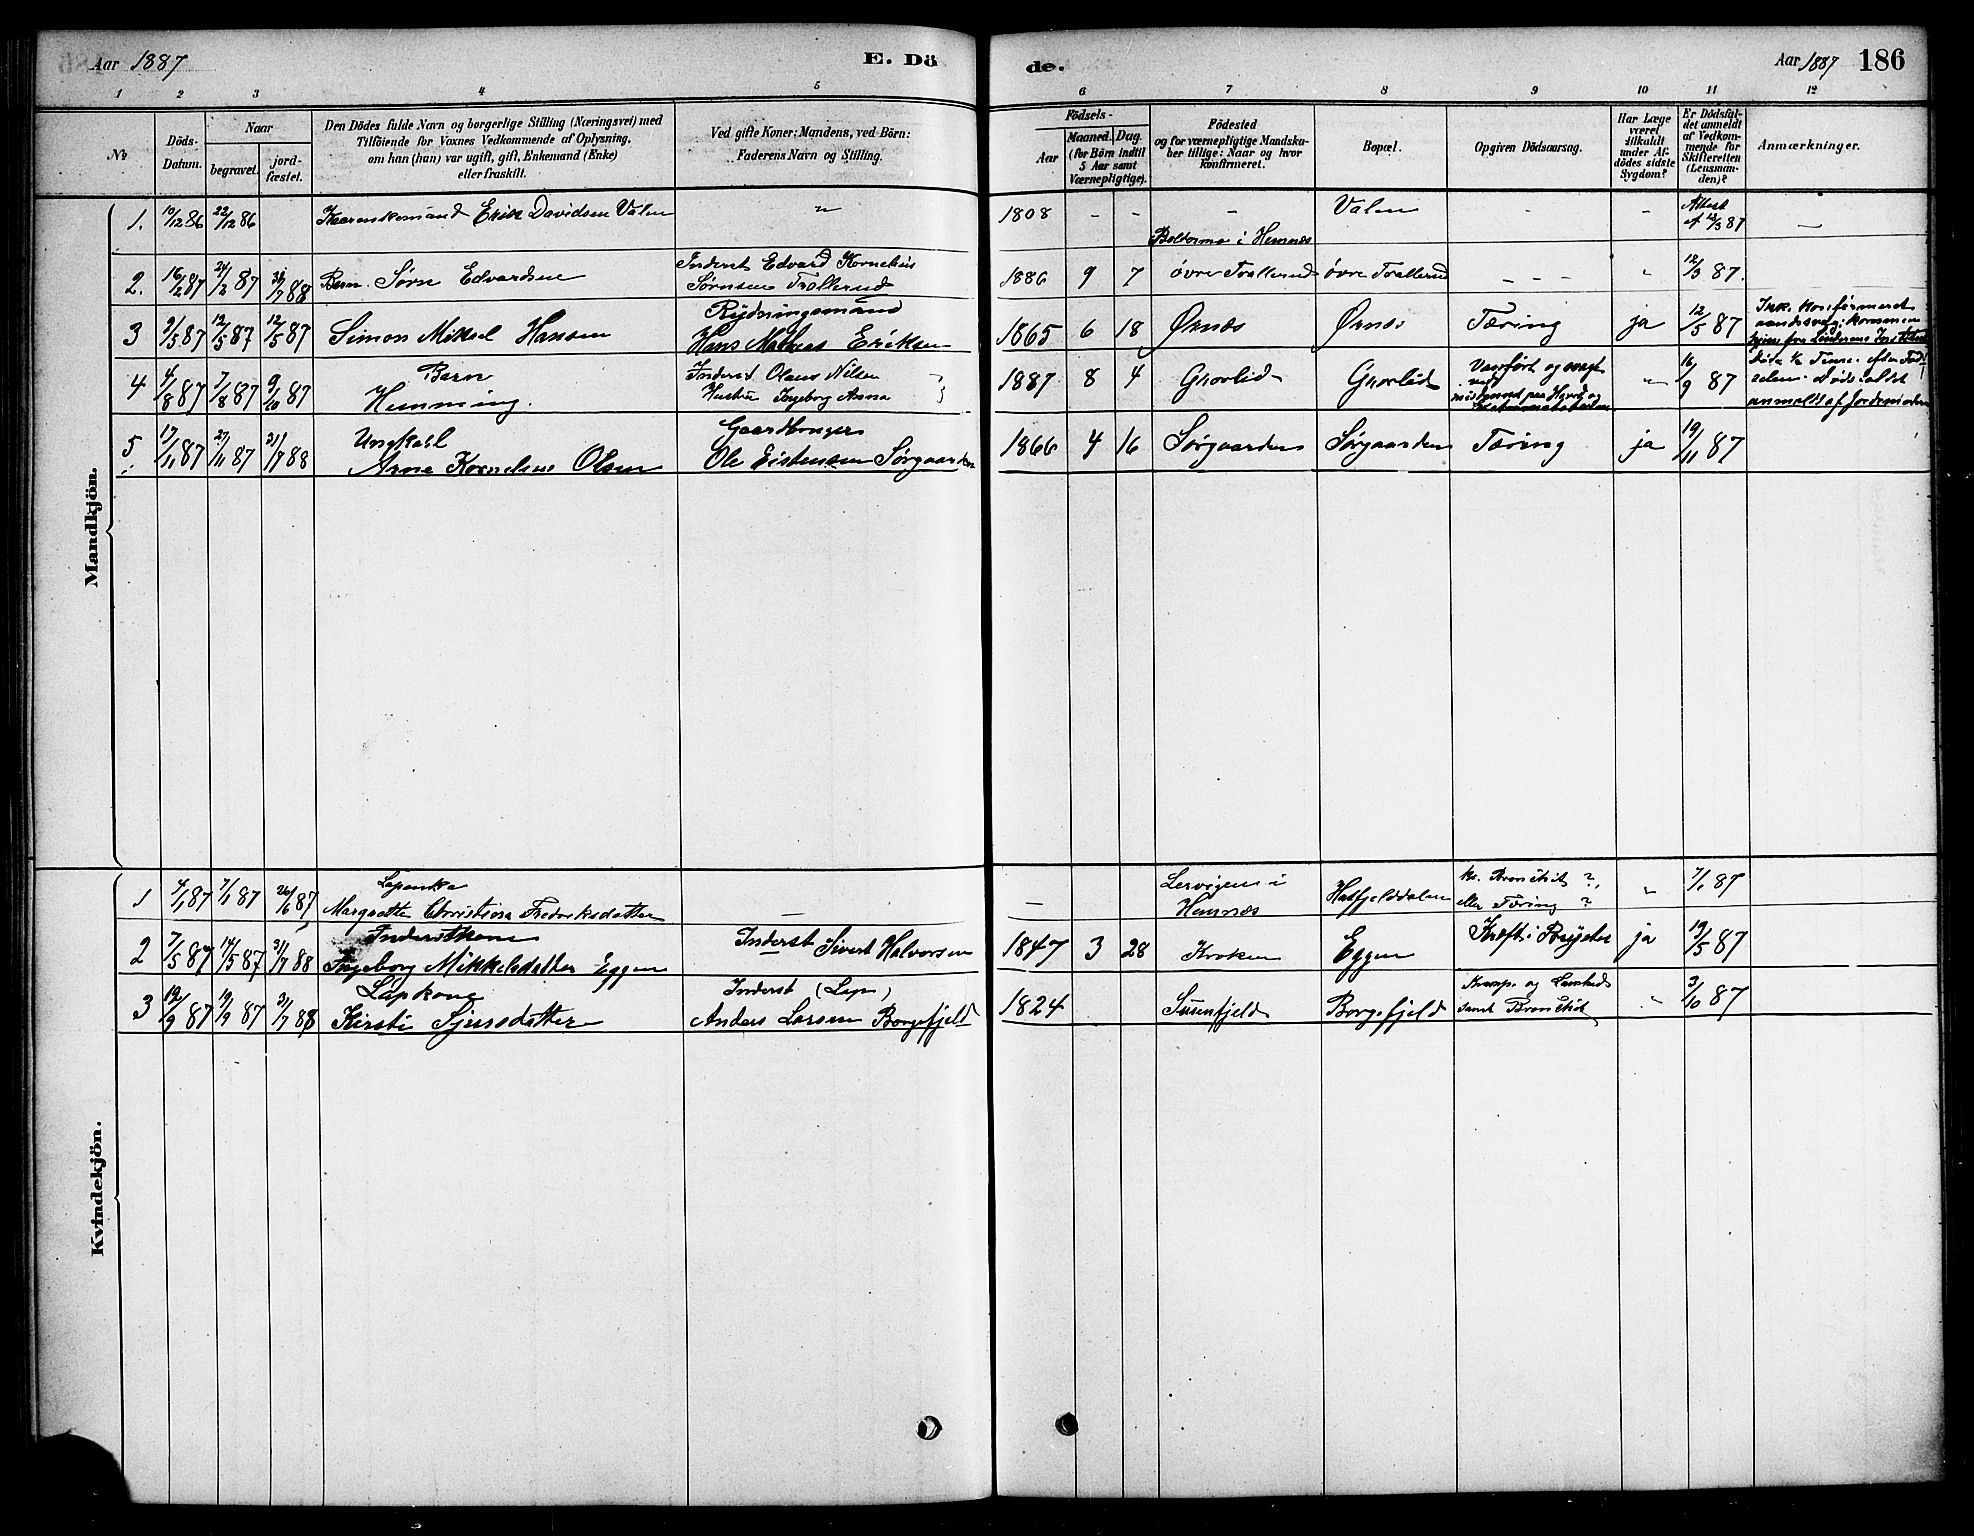 Aar 1887
E. Dö
de.
Aar 1887 186
1 2 3 4 5 6 7 8 9 10 11 12
№
Döds-
Datum.
Naar
begravet.
jord-
fæstet.
Den Dödes fulde Navn og borgerlige Stilling (Næringsvei) med
Tilföiende for Voxnes Vedkommende af Oplysning,
om han (hun) var ugift, gift, Enkemand (Enke)
eller fraskilt.
Ved gifte Koner: Mandens, ved Börn:
Faderens Navn og Stilling.
Födsels-
Aar
Maaned. Dag.
(for Börn indtil
5 Aar samt
Værnepligtige).
Födested
og for værnepligtige Mandska-
ber tillige: Naar og hvor
konfirmeret.
Bopæl.
Opgiven Dödsaarsag.
Har Læge
været
tilkaldt
under Af-
dödes sidste
Sygdom?
Er Dödsfal-
det anmeldt
af Vedkom-
mende for
Skifteretten
(Lensman-
den)?
Anmærkninger.
Mandkjön.
1. 10/12 86 22/12 86 Erik Davidsen Valen „ 1808 - - - Valen - - 87 —
2. 16/2 87 24/2 87 31/7 88 Barn. Sørn Edvardsen
Inderst Edvard Kornelius
Sørnsen Trallerud
1886 9 7
i Hemnæs
øvre Trallerud øvre Trallerud - - - „ 12/3 87.
3 3/5 87 12/5 87 12/5 87 Simon Mikal Hansen
Rydningsmand
Hans Mathias Eriksen
1865 6 18 Ørnæs Ørnæs Tæring ja 12/5 87
Ikke konfirmeret
4 4/8 87 7/8 87 9/10 87
Barn
Hemming.
Inderst Olaus Nilsen
Hustru Ingeborg Anna
1887 8 4 Grovlid Grovlid
„ 16/9 87
anmeldt af Jordemoderen
5 17/11 87 27/11 87 31/7 88
Ungkarl
Arne Kornelius Olsen
Gaardbruger
Ole Eistensen Sørgaarden
1866 4 16 Sørgaarden Sørgaarden Tæring ja 19/11 87
Kvindekjön.
1 4/1 87 7/1 87 26/6 87
Margrethe Christina Fredriksdatter
— —
Lervigen i
Hemnæs
Hatfjelddalen
Bronchit ?,
eller Tæring ?
„ 7/1 87
2 7/5 87 14/5 87 31/7 88
Inderstkone
Ingeborg Mikkelsdatter Eggen
Inderst Sivert Halvorsen
1847 3 28 Kroken Eggen Kræft i Brystet ja 19/5 87
3 12/9 87 19/9 87 31/7 88
Lapkone
Kirsti Sjursdatter
Inderst (Lap)
Anders Larsen Borgefjeld
1824 Susenfjeld Borgefjeld
samt Bronchit
„ 3/10 87